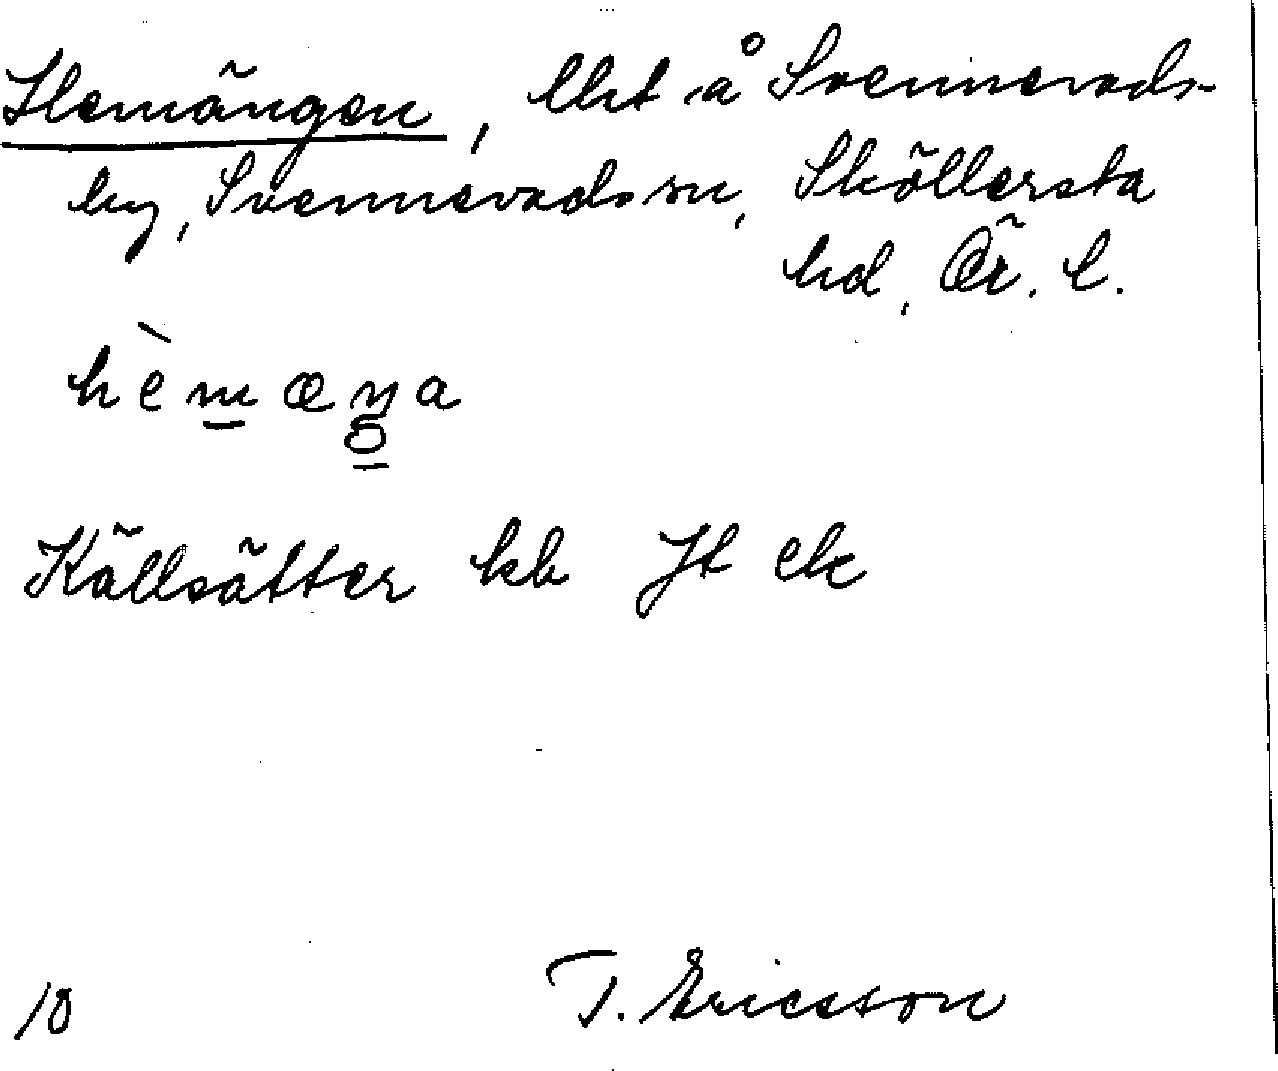 Hemängen, lht å Svennevads-
by, Svennevads sn, Sköllersta
hd, Ör. l.
hèmæŋa
Källsätter
T. Ericsson
10